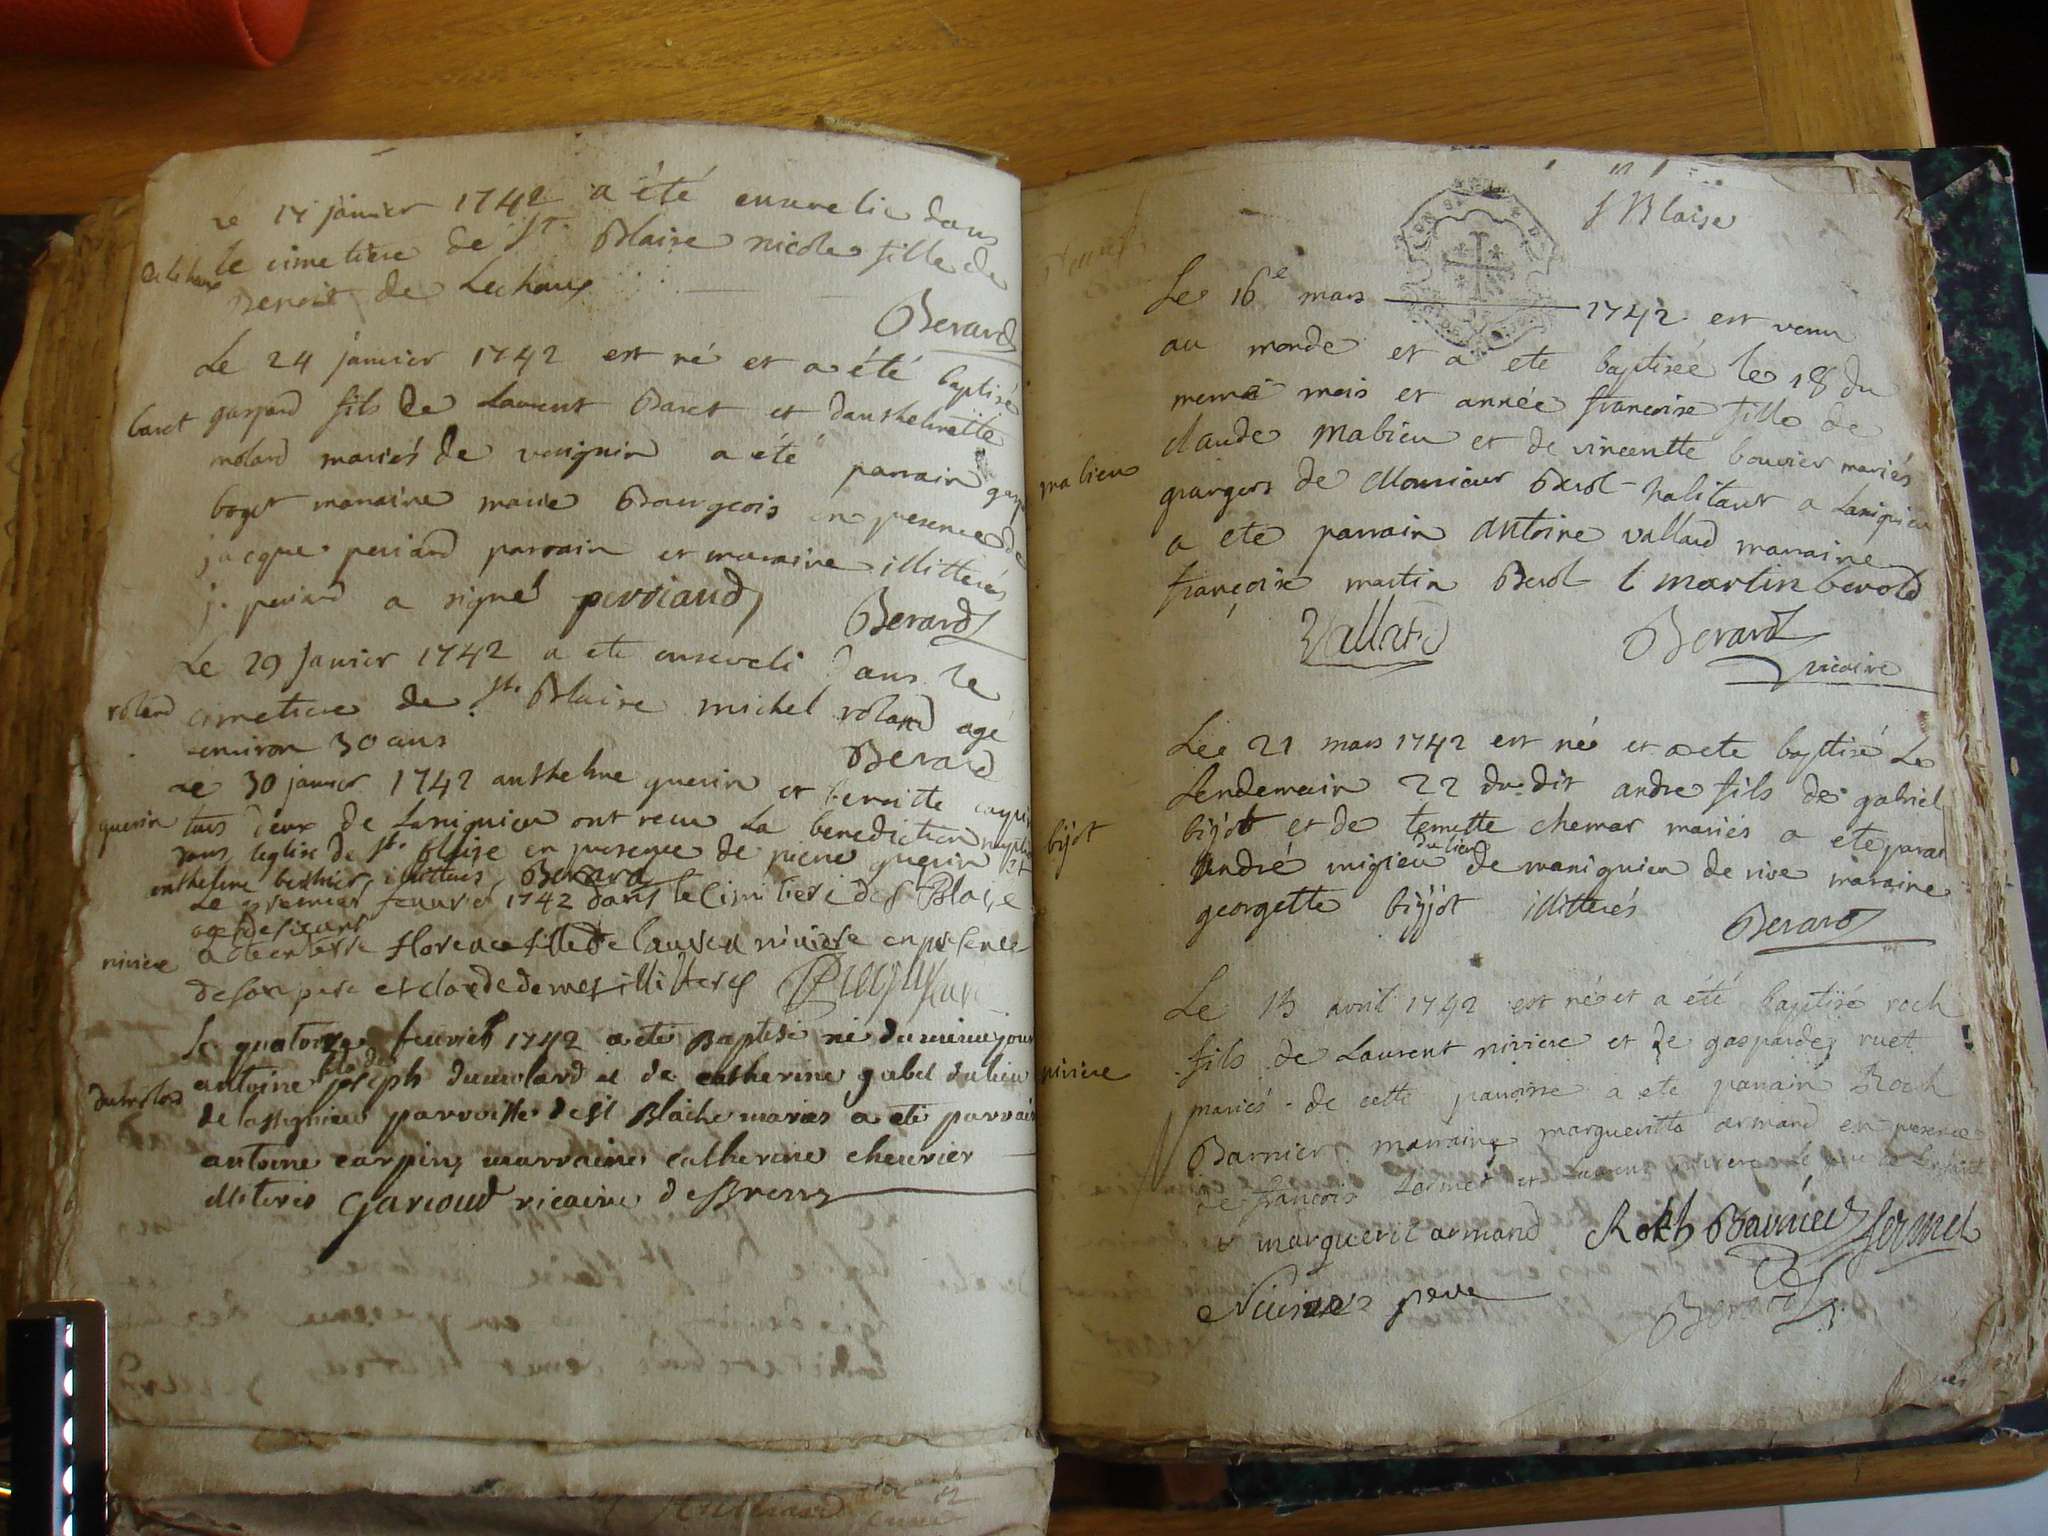 Le 17 janvier 1742 a été enseveli dans
le cimetière de St. Blaise nicole fille de
de lechaux
Benoit de Lechaux
Berard
Le 24 janvier 1742 est né et a été baptisé
baret
gaspard fils de Laurent Baret et d'anthelmette
molard mariés de veugnin a été parrain gaspard
boget maraine marie Bourgeois en presence de
jacque periard parrain et maraine illitterés
j. periard a signé perriaud
Berard
Le 29 Janvier 1742 a ete enseveli dans le
roland
cimetiere de St. Blaise michel roland agé
environ 30 ans
Berard
Le 30 janvier 1742 anthelme guerin et benoitte
guerin
tous deux de Lanignieu ont receu La benediction nuptiale
dans leglise de St. Blaise en presence de pierre guerin et
anthelme illitterés, Berard
Le premier feuvrier 1742 dans le cimitiere de St Blaise
agée de six ans
niviere
a été enterré florence fille de laurent niviere en presence
de son pere et claude demes illitterés
Le quatorze feuvrier 1742 a eté Baptisé né du même jour
antoine fils de joseph dumolard et de catherine gabet du lieu
dumolard
de lassignieu parroisse de st Blaise mariés a eté parrain
antoine carpin, marraine catherine cheuvrier
illiterés Garioud vicaire de Brens
St Blaise
Le 16e mars 1742 est venu
au monde et a ete baptisée le 18 du
meme mois et année françoise fille de
claude Mabieu et de vincentte bouvier mariés
mabieu
grangers de Monsieur Berol habitant a Lanignieu
a ete parrain antoine vallard marraine
françoise martin Berol t martin berold
Vallard
Berard
vicaire
Le 21 mars 1742 est né et a ete baptisé Le
Lendemain 22 du dit andre fils de gabriel
bijot
bijot et de chemar mariés a ete parain
du lieu
andré migieu de maniquieu de rive maraine
georgette bijjot illitterés
Berard
Le 15 avril 1742 est né et a été baptisé roch
fils de Laurent niviere et de gasparde ruet
niviere
mariés de cette paroisse a ete parrain Roch
Barnier marraine margueritte armand en presence
de francois Fermet et Laurent
marguerit armand Rokh Barnier fermet
Niviere pere
Berard